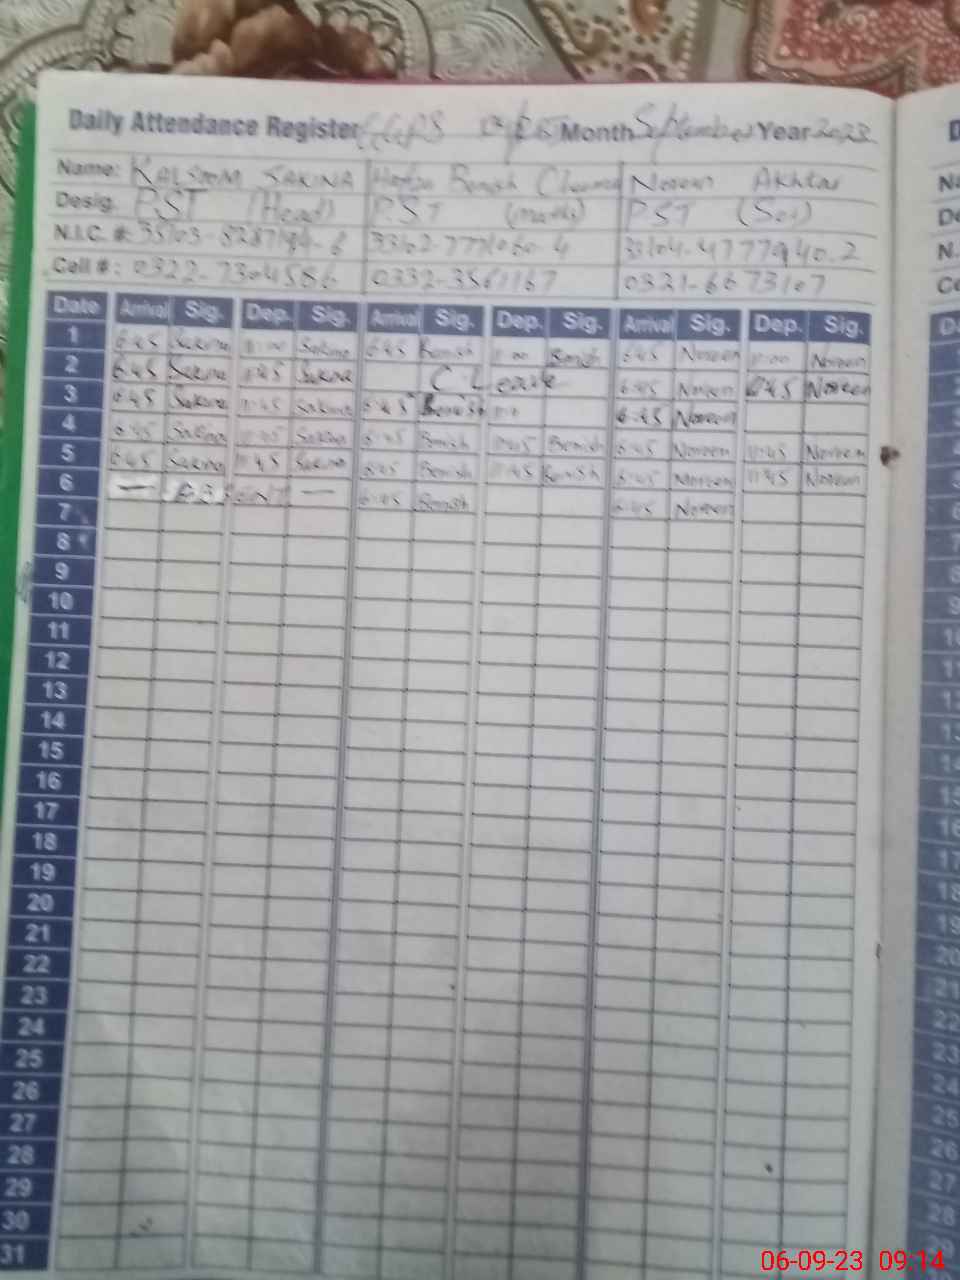 Daily Attendance Register GGPS Month September Year 2023
Name: KALSOOM SAKINA Benish Noreen Akhtar
Desig. PST (Head) PST (maths) PST (Sci)
N.I.C. #:
Cell #: 0322-7304586 0332-3561167 0321-6673107
Date Arrival Sig. Dep. Sig. Arrival Sig. Dep. Sig. Arrival Sig. Dep. Sig.
1 6:45 Sakina 11:00 Sakina 6:45 Benish 11:00 Benish 6:45 Noreen 11:00 Noreen
2 6:45 Sakina 11:45 Sakina C. Leave 6:45 Noreen 11:45 Noreen
3 6:45 Sakina 11:45 Sakina 6:45 Benish 6:45 Noreen
4 6:45 Sakina 11:45 Sakina 6:45 Benish 11:45 Benish 6:45 Noreen 11:45 Noreen
5 6:45 Sakina 11:45 Sakina 6:45 Benish 11:45 Benish 6:45 Noreen 11:45 Noreen
6 — — 6:45 Benish 6:45 Noreen
7
8
9
10
11
12
13
14
15
16
17
18
19
20
21
22
23
24
25
26
27
28
29
30
31
06-09-23 09:14